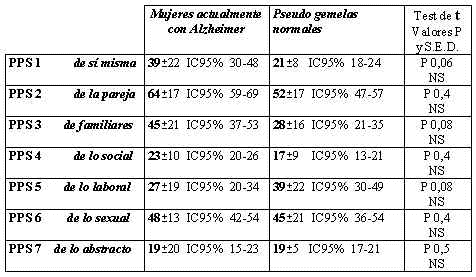 Mujeres actualmente con Alzheimer
Pseudo gemelas normales
Test de t Valores P y S.E.D.
PPS 1 de sí misma 39±22 IC95% 30-48 21±8 IC95% 18-24 P 0,06 NS
PPS 2 de la pareja 64±17 IC95% 59-69 52±17 IC95% 47-57 P 0,4 NS
PPS 3 de familiares 45±21 IC95% 37-53 28±16 IC95% 21-35 P 0,08 NS
PPS 4 de lo social 23±10 IC95% 20-26 17±9 IC95% 13-21 P 0,4 NS
PPS 5 de lo laboral 27±19 IC95% 20-34 39±22 IC95% 30-49 P 0,08 NS
PPS 6 de lo sexual 48±13 IC95% 42-54 45±21 IC95% 36-54 P 0,4 NS
PPS 7 de lo abstracto 19±20 IC95% 15-23 19±5 IC95% 17-21 P 0,5 NS